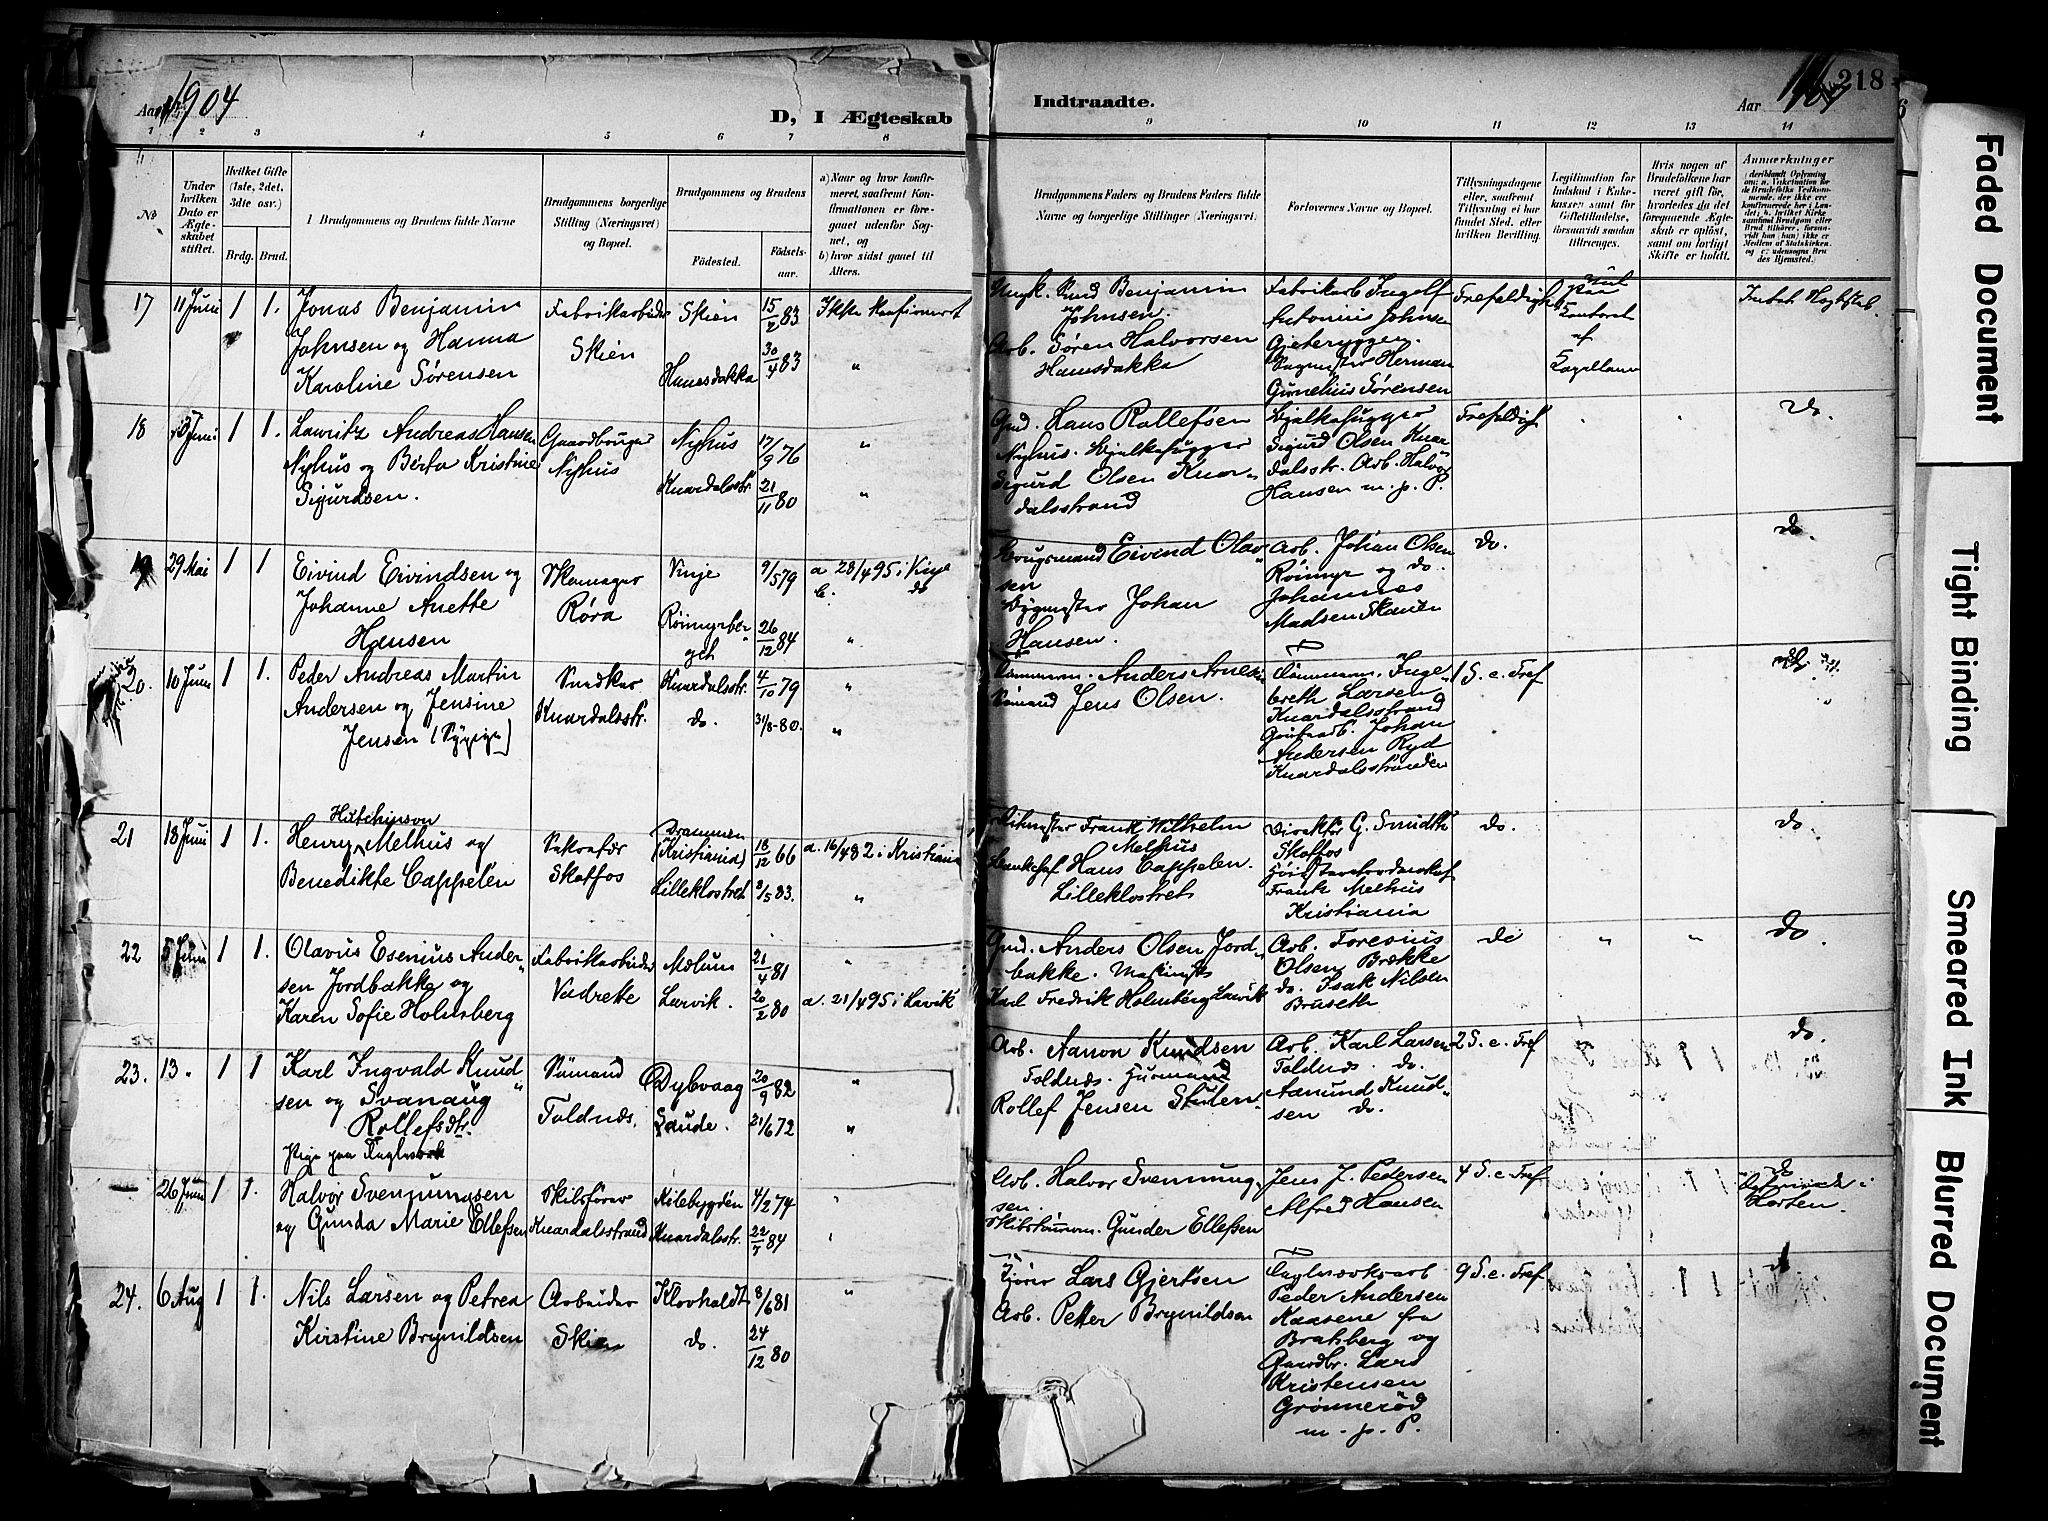 Aar 1904
D, I Ægteskab
Indtraadte.
Aar
218
1 2 3 4 5 6 7 8 9 10 11 12 13 14
No
Under hvilken Dato er Ægteskabet stiftet.
Hvilket Gifte (1ste, 2det, 3die osv.)
Brdg. Brud.
I Brudgommens og Brudens fulde Navne
Brudgommens borgerlige Stilling (Næringsvei) og Bopæl.
Brudgommens og Brudens
Fødested.
Fødselsaar.
a) Naar og hvor konfirmeret, saafremt Konfirmationen er foregaaet udenfor Sognet, og
b) hvor sidst gaaet til Alters.
Brudgommens Faders og Brudens Faders fulde Navne og borgerlige Stillinger (Næringsvei).
Forlovernes Navne og Bopæl.
Tillysningsdagene eller, saafremt Tillysning ei har fundet Sted, efter hvilken Bevilling.
Legitimation for Indskud i Enkekassen samt for Giftetilladelse, forsaavidt saadan tiltrænges.
Hvis nogen af Brudefolkene har været gift før, hvorledes da det foregaaende Ægteskab er opløst, samt om lovligt Skifte er holdt.
Anmærkninger
17
11 Juni
1
1.
Jonas Benjamin
Johnsen og Hanna
Karoline Sørensen
Fabrikarbeider
Skien
Skien
Hansdakka
15/2 83
30/4 83
Ikke konfirmert
"
Ungk. Knud Benjamin
Johnsen.
Arb. Søren Halvorsen
Hansdakka
Fabrikarb Ingolf
Antonius Johnsen
Gjeteryggen.
Bagmester Herman
Cornelius Sørensen
Trefoldigh
18
Juni
1
1.
Lauritz Andreas Hansen
Nyhus og Berta Kristine
Sigurdsen.
Gaardbruger
Nyhus
Nyhus
Knardalsstr.
17/9 76
21/11 80
"
"
Gmd. Hans Rollefsen
Nyhus. Bjælkehugger
Sigurd Olsen Knar-
dalsstrand
Bjælkehugger
Sigurd Olsen Knar-
dalsstr. Arb. Halvor
Hansen m. p. P.
Trefoldigh
Do.
19
29 Mai
1
1
Eivind Eivindsen og
Johanne Anette
Hansen
Skomager
Røra
Vinje
Röimyrber-
get
9/5 79
26/12 84
a. 28/4 95 i Vinje
b. do
"
Brugsmand Eivind Olav-
sen
Bygmester Johan
Hansen.
Arb. Johan Olsen
Röimyr og do.
Johannes
Madsen Skauen
Do.
do.
20.
10 Juni
1
1.
Peder Andreas Martin
Andersen og Jensine
Jensen
Snedker
Knardalsstr.
Knardalsstr.
do.
4/10 79
31/8-80.
"
"
Tömmerm. Anders Arnesen
Sømand Jens Olsen.
Tömmerm. Inge-
breth Larsen
Knardalsstrand
Johan
Andersen Ryd
Knardalsstranden
1 S. e. Tref
21
18 Juni
1
1.
Hutchinson
Henry Melhus og
Benedikte Cappelen
Sekretær
Skotfos
Drammen
(Kristiania)
Lilleklostret
18/12 66
8/5 83.
a. 16/4 82 i Kristiania
"
Ritmester Frank Wilhelm
Melhus
Bankchef Hans Cappelen.
Lilleklostret
Direktør G. Smidth
Skotfos
Frank Melhus
Kristiania
do.
do.
22
Juni
1
1.
Olavus Esenius Ander-
sen Jordbakke og
Karen Sofie Holmberg
Fabrikarbeider
Vadrette
Melum
Larvik.
21/4 81
20/2 80
"
a. 21/4 95 i Larvik
Gmd. Anders Olsen Jord-
bakke. Maskinist
Karl Fredrik Holmberg Larvik
Arb. Foresius
Olsen Brække
do. Isak Nilsen
Bruseth
do
"
"
do.
23.
13 "
1
1
Karl Ingvald Knud-
sen og Svanaug
Rollefsdtr.
Pige paa
Sømand
Toldnæs.
Dybvaag
Saude.
20/9 82
21/6 72
"
"
Arb. Aanon Knudsen
Toldnæs. Husmand
Rollef Jensen
Arb. Karl Larsen
Toldnæs. do.
Aamund Knud-
sen do.
2 S. e. Tref
do.
—
26 Juni
1
1.
Halvor Svennungsen
og Gunda Marie Ellefsen
Skibsfører
Knardalsstrand
Kilebygden
Knardalsstr.
4/2 74
22/7 84
"
Arb. Halvor Svennung-
sen.
Skibstømmerm. Gunder Ellefsen
Jens J. Pedersen
Alfred Hansen
4 S. e. Tref
do
Horten.
24.
6 Aug
1
1.
Nils Larsen og Petrea
Kirstine Brynildsen
Arbeider
Skien
Klovholdt
do.
8/6 81
24/12 80
"
Lars Gjertsen
Arb. Petter Brynildsen
Teglværksarb
Peder Andersen
Kaasene fra
Bratsberg og
Gaardbr. Lars
Kristensen
Grönneröd
m. p. P.
9 S. e. Tref
Faded Document
Tight Binding
Smeared Ink
Blurred Document